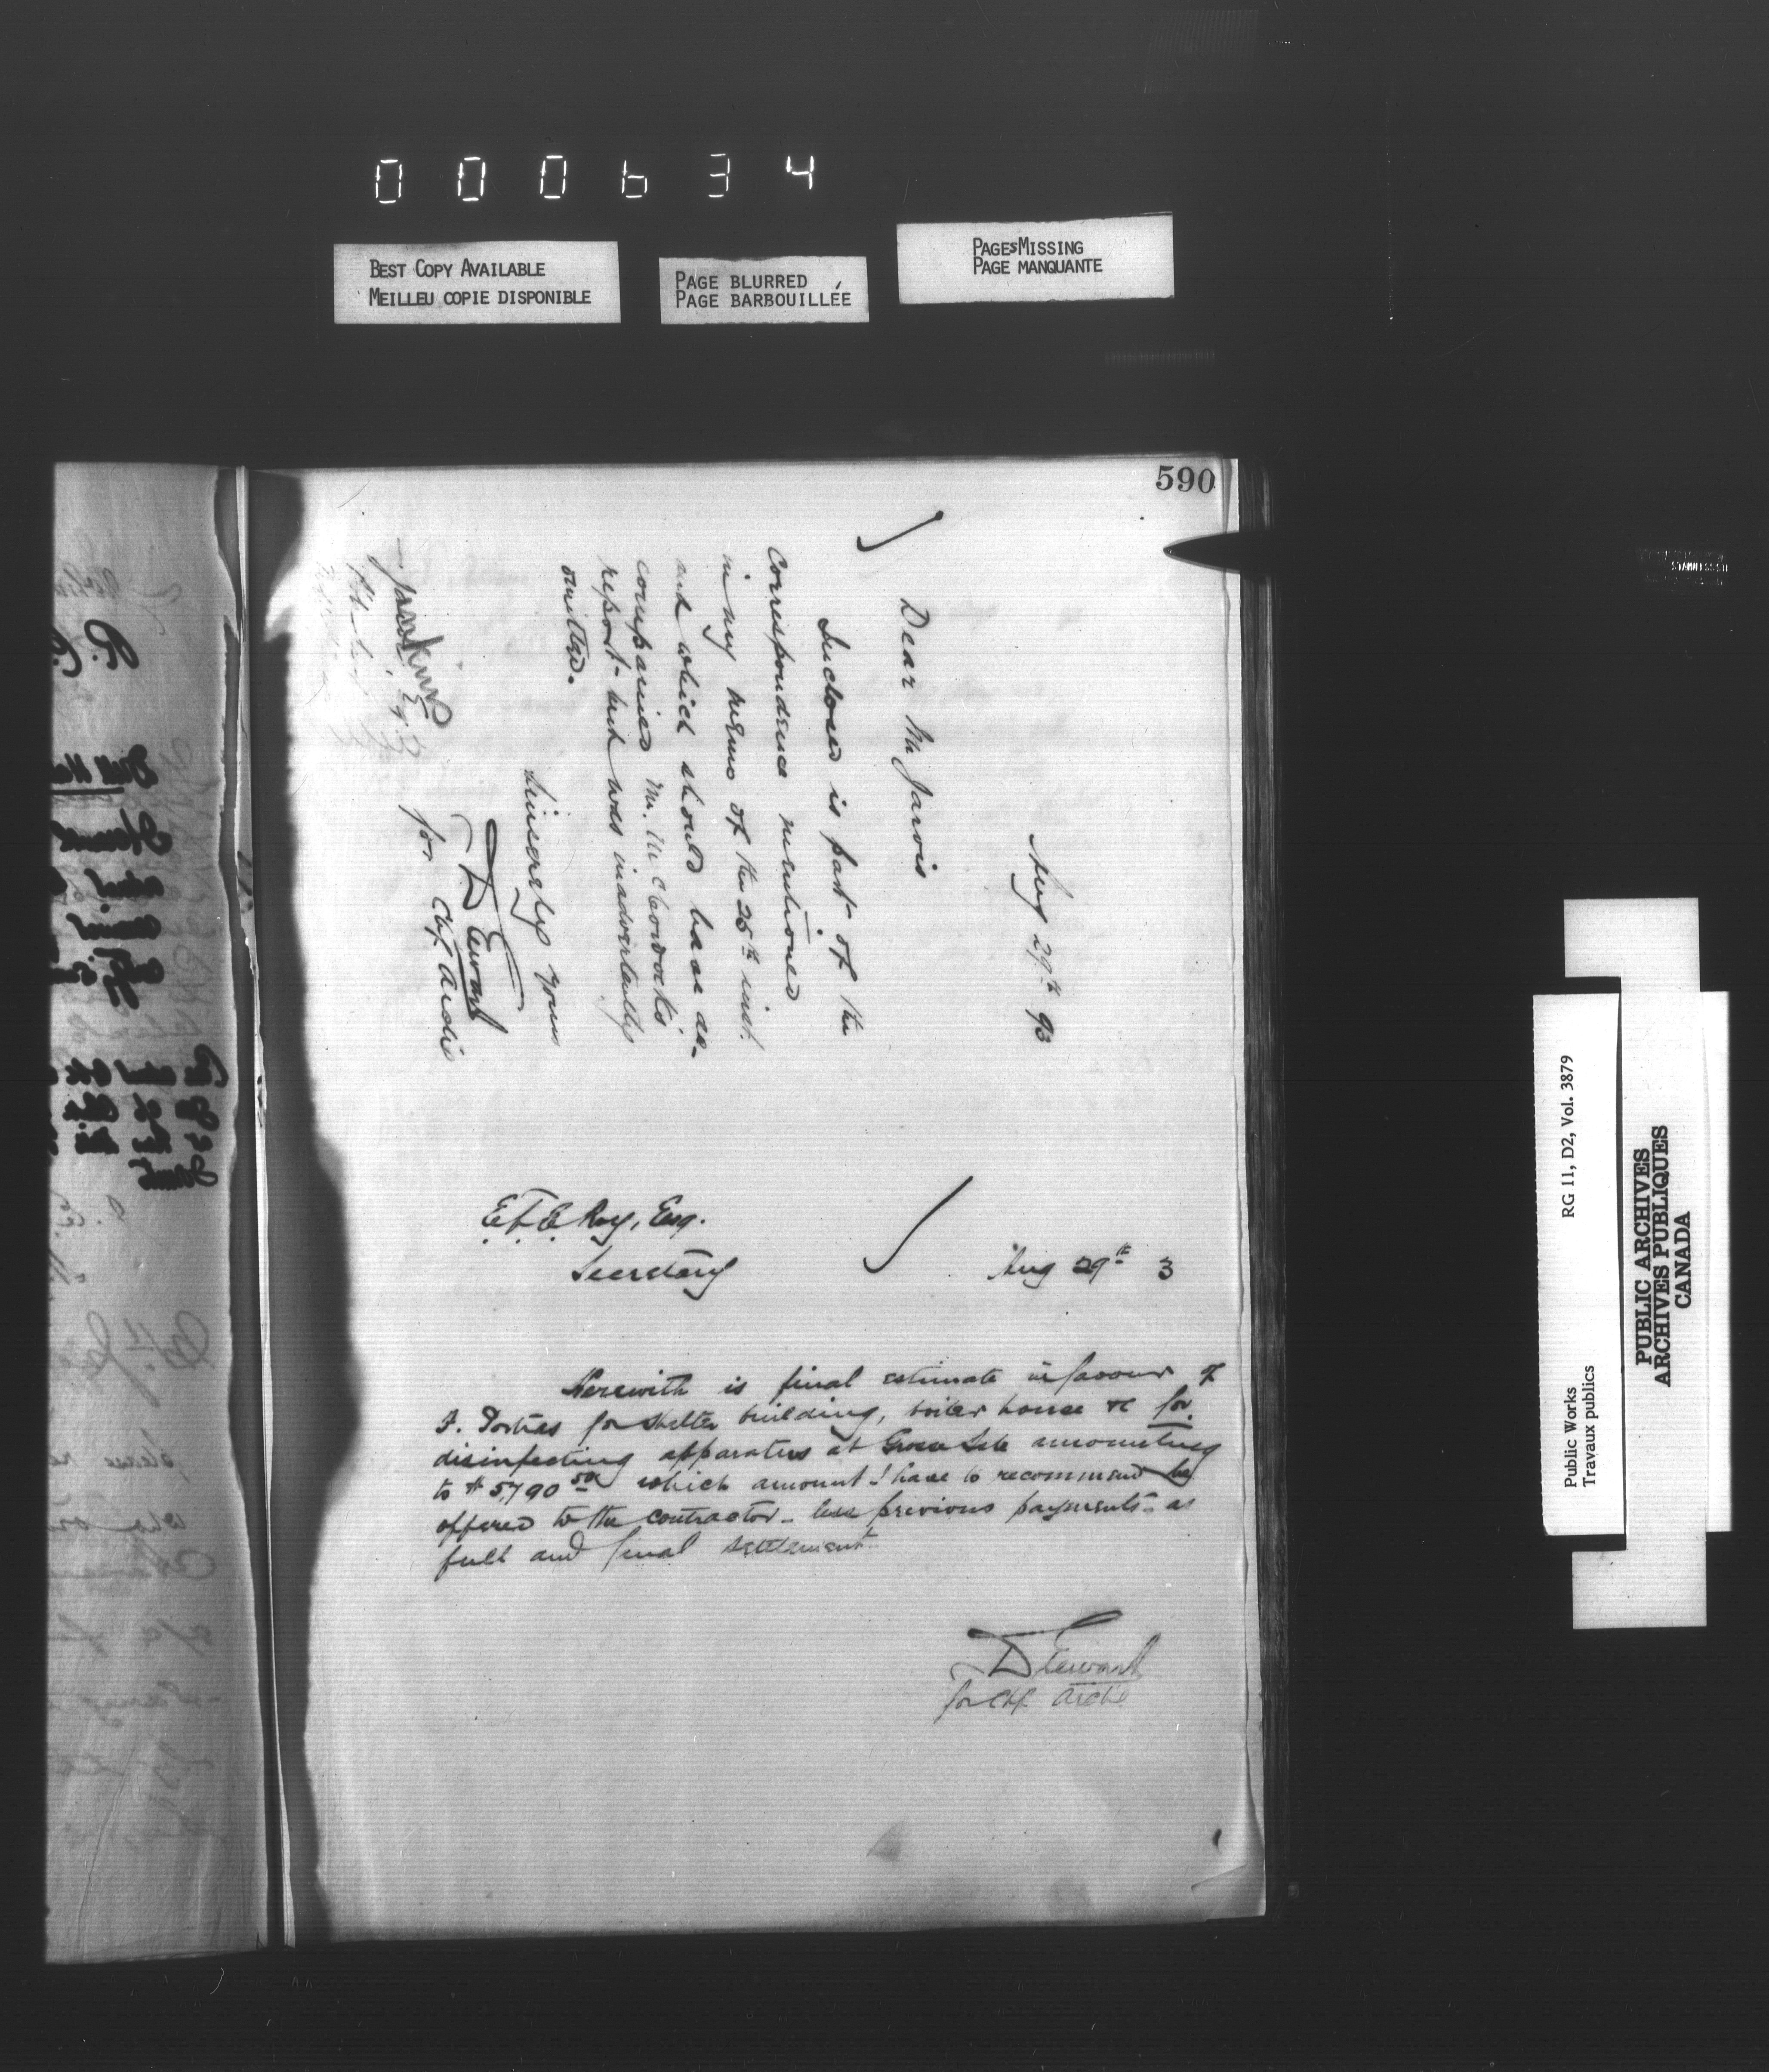 000634
BEST COPY AVAILABLE
MEILLEU COPIE DISPONIBLE
PAGE BLURRED
PAGE BARBOUILLÉE
PAGESMISSING
PAGE MANQUANTE
590
Aug 29th 93
Dear Mr Jarvis
Inclosed is part of the
correspondence mentioned
in my memo of the 26th inst.
and which should have ac-
companied Mr.
report but was inadvertently
omitted.
Sincerely yours
D Ewart
for Chf Archt
Jarvis Esq
E.F.E. Roy, Esq.
Secretary
Aug 29th 3
Herewith is final estimate in favour of
F. for shelter building, boiler house &c for
disinfecting apparatus at Grosse Isle amounting
to $5,790 50 which amount I have to recommend be
offered to the contractor - less previous payments - as
full and final settlement
D Ewart
for Chf Archt
RG 11, D2, Vol. 3879
Public Works
Travaux publics
PUBLIC ARCHIVES
ARCHIVES PUBLIQUES
CANADA